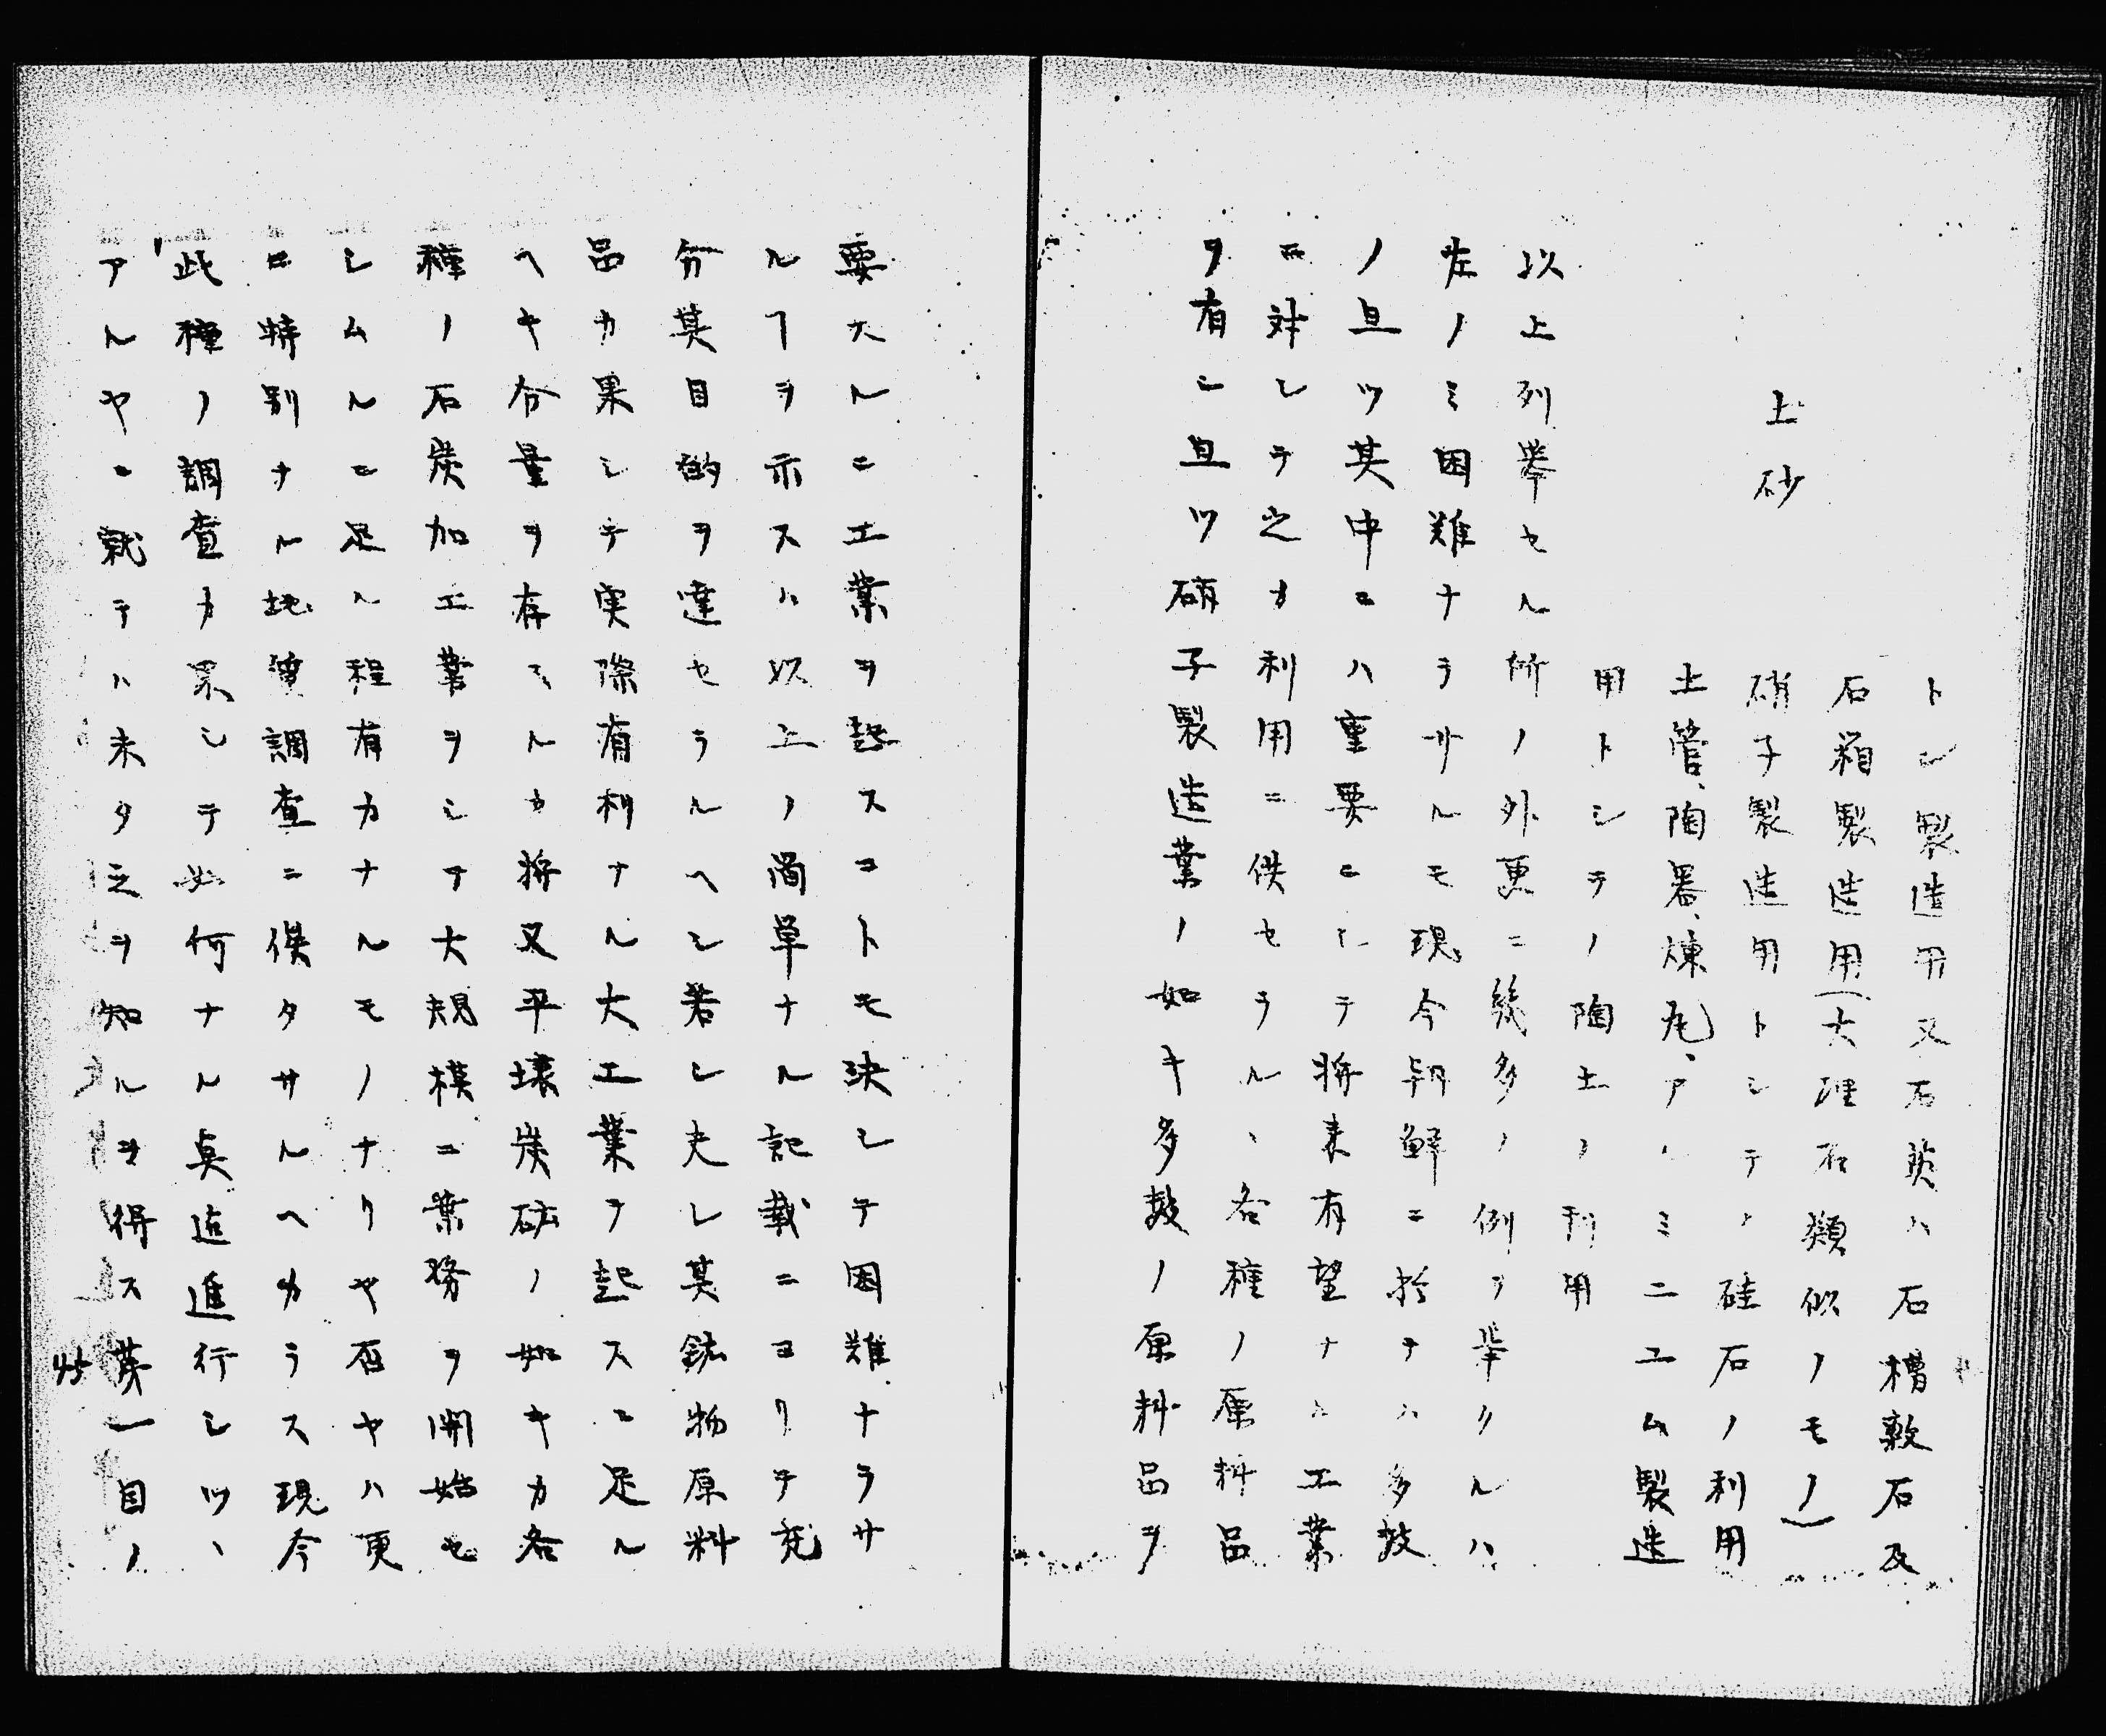 トシ製造用又石英ハ石槽敷石及
石箱製造用(大理石類似ノモノ)
土砂　硝子製造用トシテノ硅石ノ利用
土管、陶器、煉瓦、アルミニユム製造
用トシテノ陶土ノ利用
以上列挙セル所ノ外更ニ幾多ノ例ヲ挙クルハ
左ノミ困難ナラサルモ現今朝鮮ニ於テハ多数
ノ且ツ其中ニハ重要ニシテ将来有望ナル工業
ニ対シテ之カ利用ニ供セラル、各種ノ原料品
ヲ有シ且ツ硝子製造業ノ如キ多数ノ原料品ヲ
要スルニ工業ヲ起スコトモ決シテ困難ナラサ
ルヿヲ示スハ以上ノ簡単ナル記載ニヨリテ充
分其目的ヲ達セラルヘシ若シ夫レ其鉱物原料
品カ果シテ実際有利ナル大工業ヲ起スニ足ル
ヘキ分量ヲ存スルカ将又平壌炭砿ノ如キカ各
種ノ石炭加工業ヲシテ大規模ニ業務ヲ開始セ
シムルニ足ル程有力ナルモノナリヤ否ヤハ更
ニ特別ナル地質調査ニ俟タサルヘカラス現今
此種ノ調査カ果シテ如何ナル点迄進行シツ、
アルヤニ就テハ未タ之ヲ知ルヲ得ス蓋一目ノ